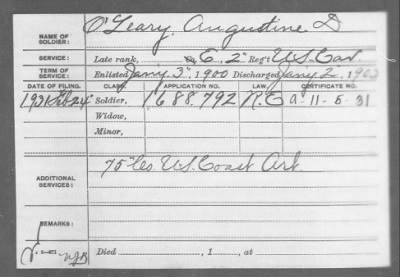 NAME OF SOLDIER: O'Leary, Augustine D
SERVICE: Late rank, Co E. 2" Reg't U.S. Cav.
TERM OF SERVICE: Enlisted Jany 3", 1900 Discharged Jany 2, 1903
DATE OF FILING. CLASS. APPLICATION NO. LAW. CERTIFICATE NO.
1931 Feb 24 Soldier, 1688,792 a-11-5-31
Widow,
Minor,
ADDITIONAL SERVICES: 75" Co. U.S. Coast Art.
REMARKS:
Died , 1 , at